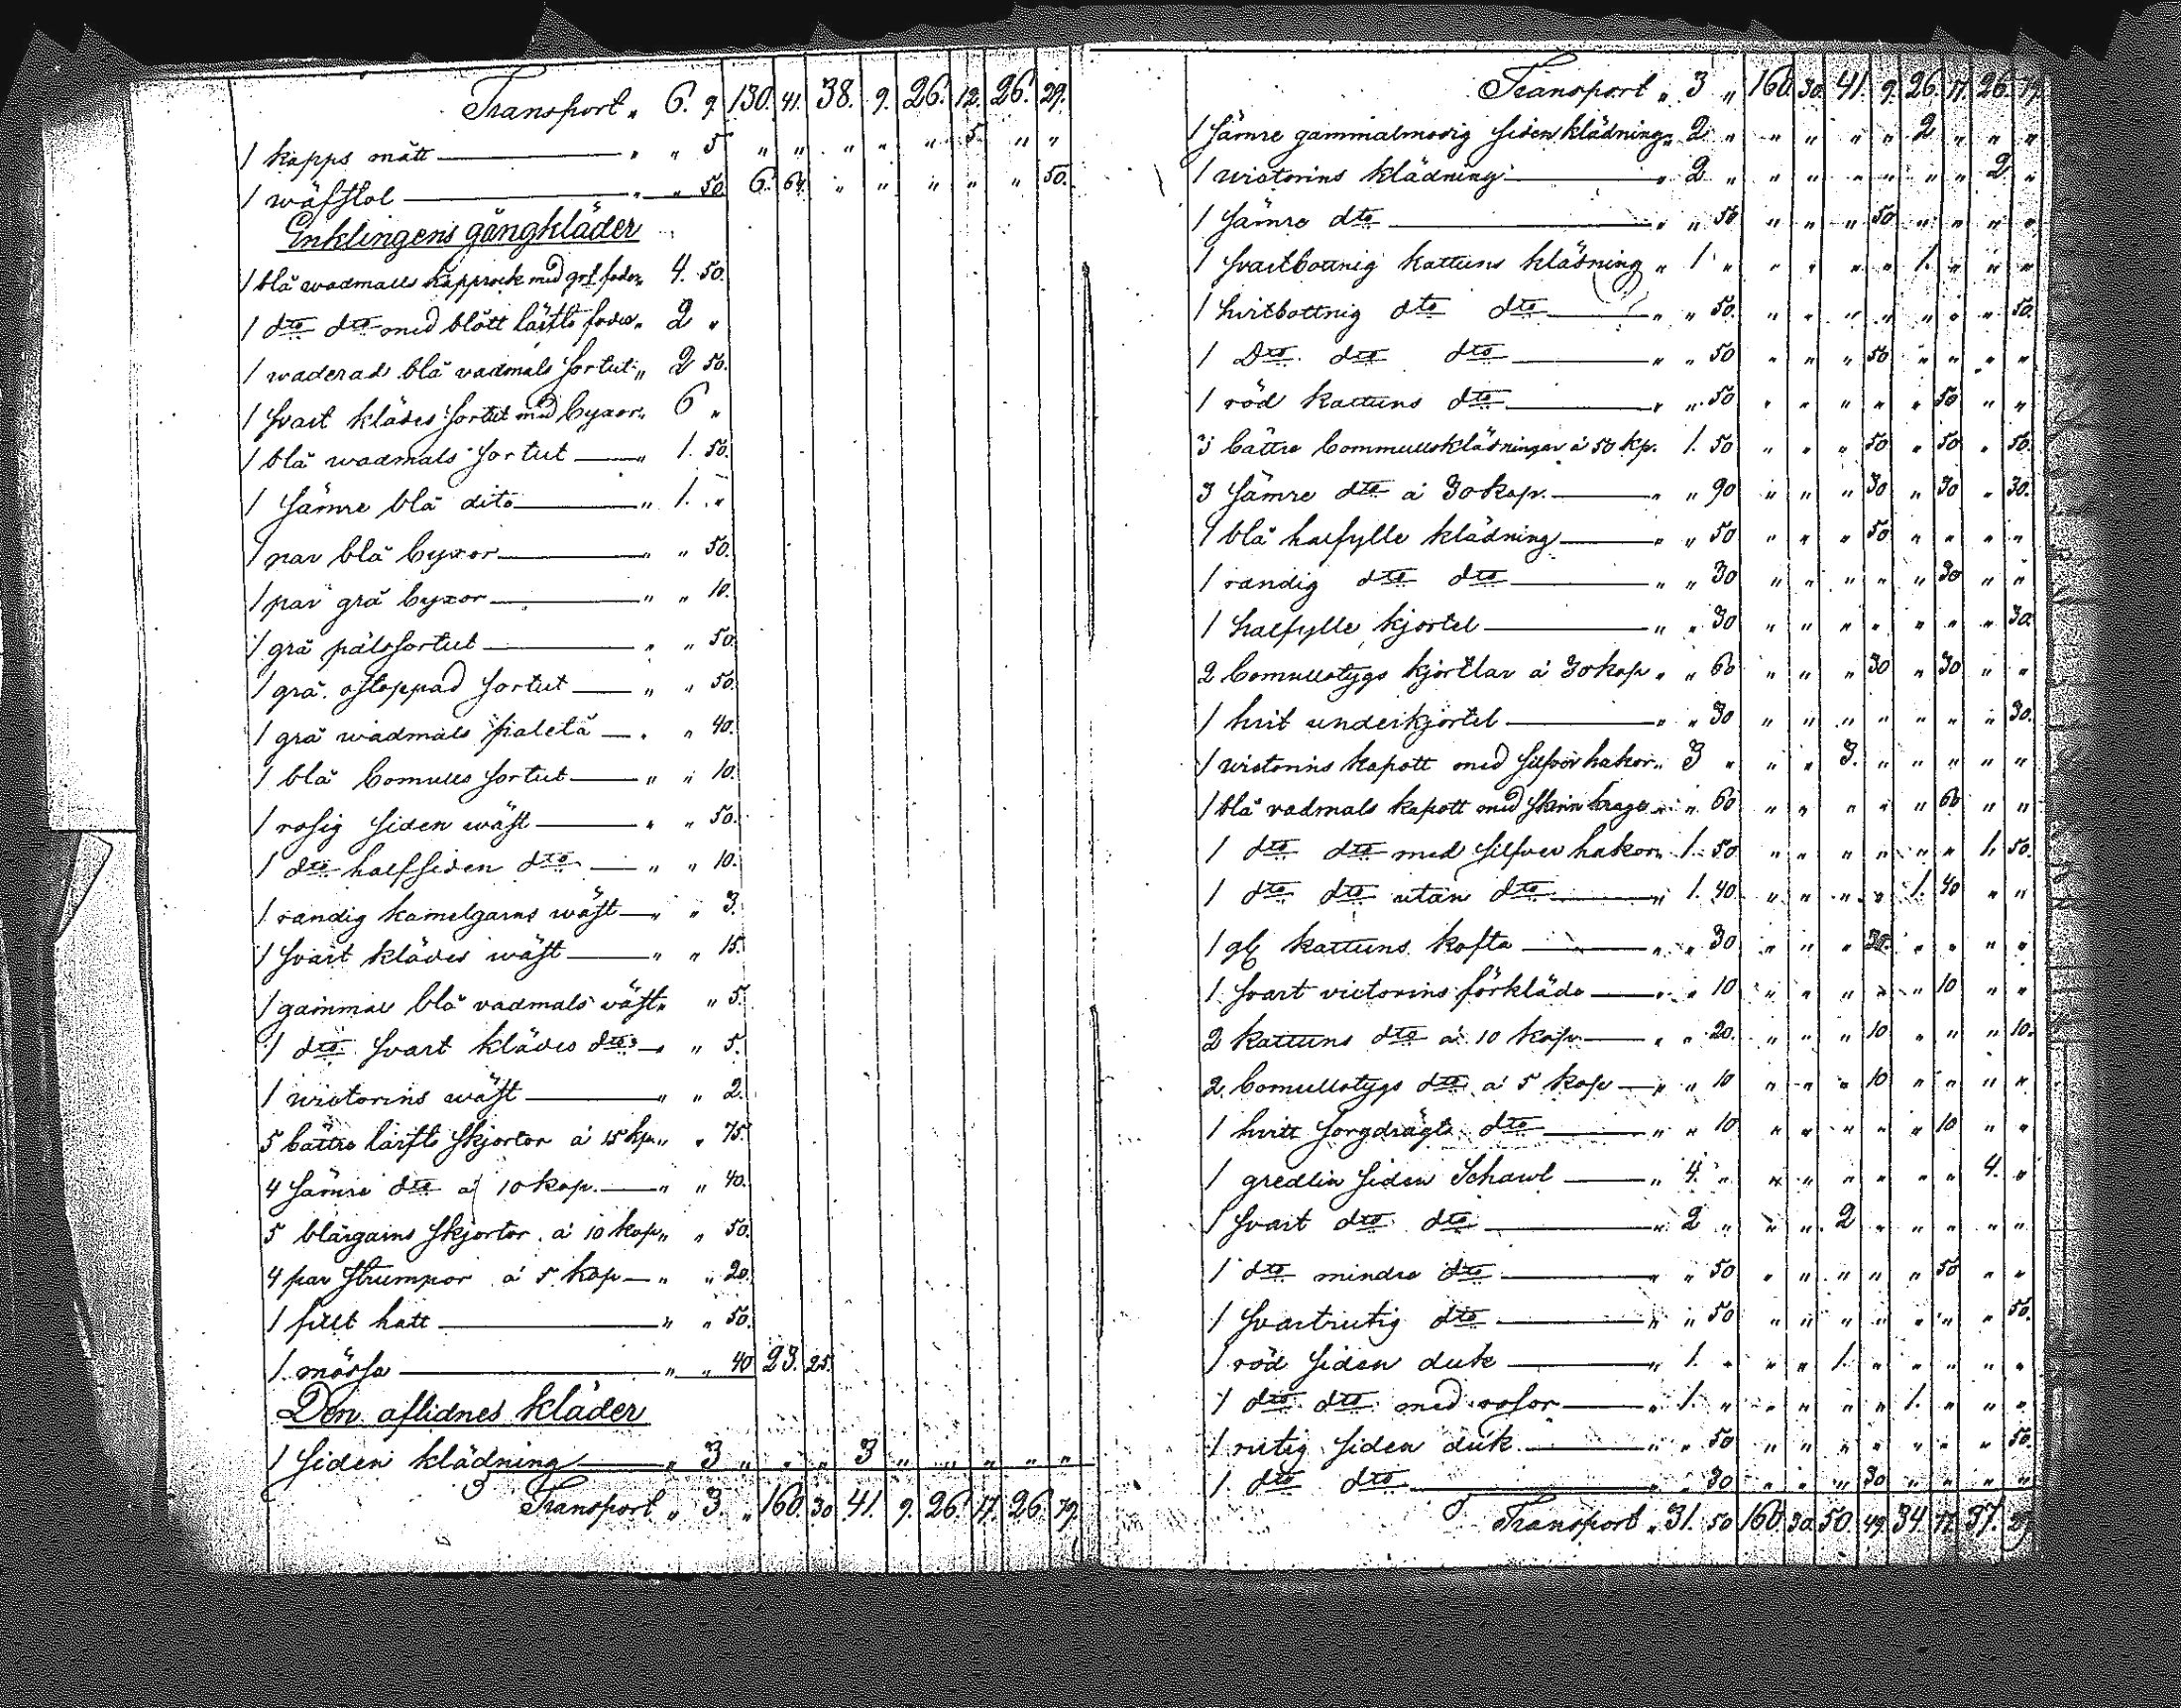 Transport „ 6. 9. 130. 41. 38. 9. 26. 12. 26. 29.
1 kapps mått „ „ 5 „ „ „ „ „ 5 „ „
1 wäfstol „ „ 50. 6. 64. „ „ „ „ „ 50.
Enklingens gångkläder
1 blå wadmals kapprock med grå foder „ 4. 50.
1 dto dto med blått lärfts foder „ 2 „
1 waderad blå vadmals sortut „ 2 50.
1 svart klädes sortut med byxor „ 6 „
1 blå wadmals sortut „ 1. 50.
1 sämre blå dito „ 1. „
1 par blå byxor „ „ 50.
1 par grå byxor „ „ 10.
1 grå pälssortut „ „ 50.
1 grå ostoppad sortut „ „ 50.
1 grå wadmals paletå „ „ 40.
1 blå bomulls sortut „ „ 10.
1 rosig siden wäst „ „ 50.
1 dto halfsiden dto „ „ 10.
1 randig kamelgarns wäst „ „ 3.
1 svart klädes wäst „ „ 15.
1 gammal blå vadmals väst „ „ 5.
1 dto svart klädes dto „ „ 5.
1 victorins wäst „ „ 2.
5 bättre lärfts skjortor á 15 kp. „ „ 75.
4 sämre dto á 10 kop. „ „ 40.
5 blårgarns skjortor á 10 kop „ „ 50.
4 par strumpor á 5 kop „ „ 20.
1 filt hatt „ „ 50.
1 mössa „ „ 40 23. 25.
Den aflidnes kläder
1 siden klädning „ 3 „ „ „ 3 „ „ „ „ „
Transport „ 3. „ 160. 30 41. 9. 26. 17. 26. 79.
Transport „ 3 „ 160. 30. 41. 9. 26. 17. 26. 79.
1 sämre gammalmodig siden klädning „ 2 „ „ „ „ „ 2 „ „ „
1 victorins klädning „ 2 „ „ „ „ „ „ „ 2 „
1 sämre dto „ „ 50 „ „ „ 50 „ „ „ „
1 svartbottnig kattuns klädning „ 1 „ „ „ „ „ 1. „ „ „
1 hvitbottnig dto dto „ „ 50. „ „ „ „ „ „ „ 50.
1 Dto dto dto „ „ 50 „ „ „ 50 „ „ „ „
1 röd kattuns dto „ „ 50 „ „ „ „ „ 50 „ „
3 bättre bommullsklädningar á 50 kp. 1. 50 „ „ „ 50 „ 50 „ 50.
3 sämre dto á 30 kop. „ „ 90 „ „ „ 30 „ 30 „ 30.
1 blå halfylle klädning „ „ 50 „ „ „ 50 „ „ „ „
1 randig dto dto „ „ 30 „ „ „ „ „ 30 „ „
1 halfylle kjortel „ „ 30 „ „ „ „ „ „ „ 30.
2 bomullstygs kjortlar á 30 kop „ „ 60 „ „ „ 30 „ 30 „ „
1 hvit underkjortel „ „ 30 „ „ „ „ „ „ „ 30.
1 victorins kapott med silfver hakor „ 3 „ „ „ 3. „ „ „ „ „
1 blå vadmals kapott med skinn krage „ „ 60 „ „ „ „ „ 60 „ „
1 dto dto med silfver hakor „ 1. 50 „ „ „ „ „ „ 1. 50.
1 dto dto utan dto „ 1. 40 „ „ „ „ 1. 40 „ „
1 gl kattuns kofta „ „ 30 „ „ „ 30. „ „ „ „
1 svart victorins förkläde „ „ 10 „ „ „ „ „ 10 „ „
2 kattuns dto á 10 kop „ „ 20. „ „ „ 10 „ „ „ 10.
2 bomullstygs dto á 5 kop „ „ 10 „ „ „ 10 „ „ „ „
1 hvitt sorgdrägts dto „ „ 10 „ „ „ „ „ 10 „ „
1 gredlin siden Schawl „ 4. „ „ „ „ „ „ „ 4. „
1 svart dto dto „ 2 „ „ „ 2 „ „ „ „ „
1 dto mindre dto „ „ 50 „ „ „ „ „ 50 „ „
1 svartrutig dto „ „ 50 „ „ „ „ „ „ „ 50.
1 röd siden duk „ 1. „ „ „ 1. „ „ „ „ „
1 dto dto med rosor „ 1. „ „ „ „ „ 1. „ „ „
1 rutig siden duk „ „ 50 „ „ „ „ „ „ „ 50.
1 dto dto „ „ 30 „ „ „ 30 „ „ „ „
Transport „ 31. 50 160. 30. 50. 49. 34. 77. 37.